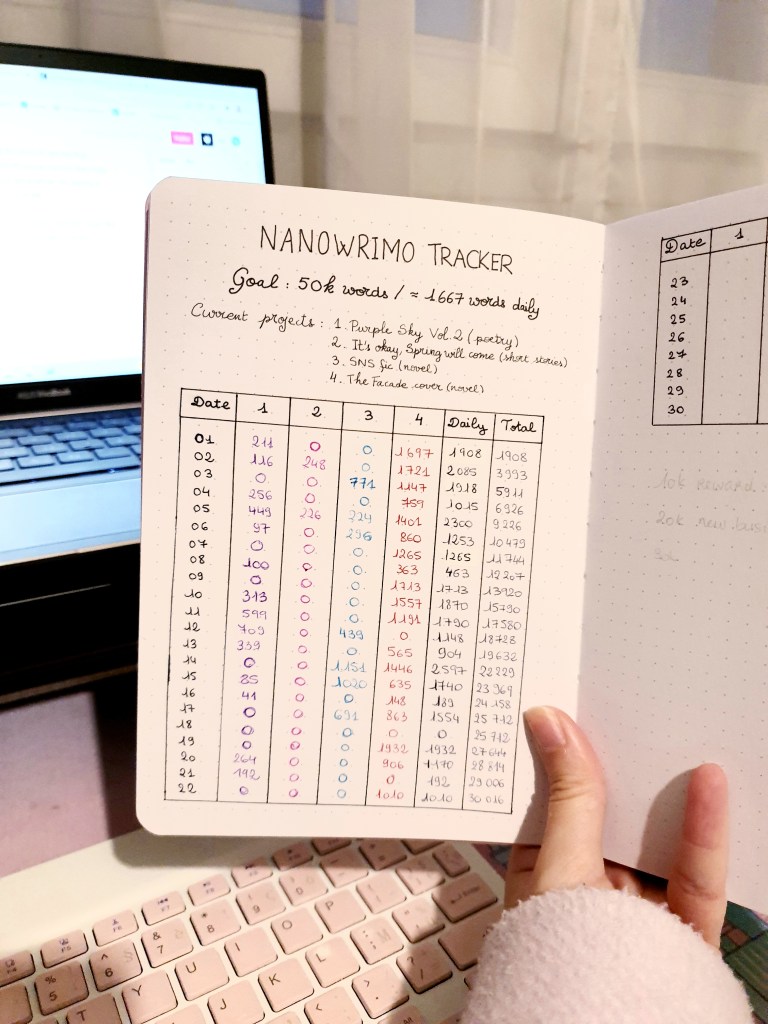 NANOWRIMO TRACKER
Goal : 50k words / ≈ 1667 words daily
Current projects : 1. Purple Sky Vol.2 (poetry)
2. It's okay, Spring will come (short stories)
3. SNS fic (novel)
4. The Facade cover (novel)
Date 1 2 3 4 Daily Total
01 211 0 0 1697 1908 1908
02 116 248 0 1721 2085 3993
03 0 0 771 1147 1918 5911
04 256 0 0 759 1015 6926
05 449 226 224 1401 2300 9226
06 97 0 296 860 1253 10479
07 0 0 0 1265 1265 11744
08 100 0 0 363 463 12207
09 0 0 0 1713 1713 13920
10 313 0 0 1557 1870 15790
11 599 0 0 1191 1790 17580
12 709 0 439 0 1148 18728
13 339 0 0 565 904 19632
14 0 0 1151 1446 2597 22229
15 85 0 1020 635 1740 23969
16 41 0 0 148 189 24158
17 0 0 691 863 1554 25712
18 0 0 0 0 0 25712
19 0 0 0 1932 1932 27644
20 264 0 0 906 1170 28814
21 192 0 0 0 192 29006
22 0 0 0 1010 1010 30016
Date 1
23
24
25
26
27
28
29
30
10k reward
20k new
F4 F5 F6 F7
% 5 ^ 6 & 7 * 8 ( 9
T Y U I O P
H J K L